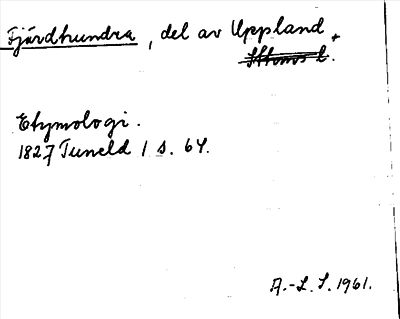 Fjärdhundra, del av Uppland.
Sthms l.
Etymologi.
1827 Tuneld 1 s. 64.
A.-L. S. 1961.